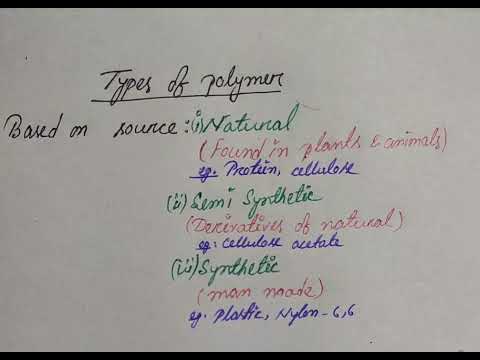 Types of polymer
Based on source: (i) Natural
(Found in plants & animals)
eg. Protein, cellulose
(ii) Semi Synthetic
(Derivatives of natural)
eg: cellulose acetate
(iii) Synthetic
(man made)
eg. Plastic, Nylon-6,6